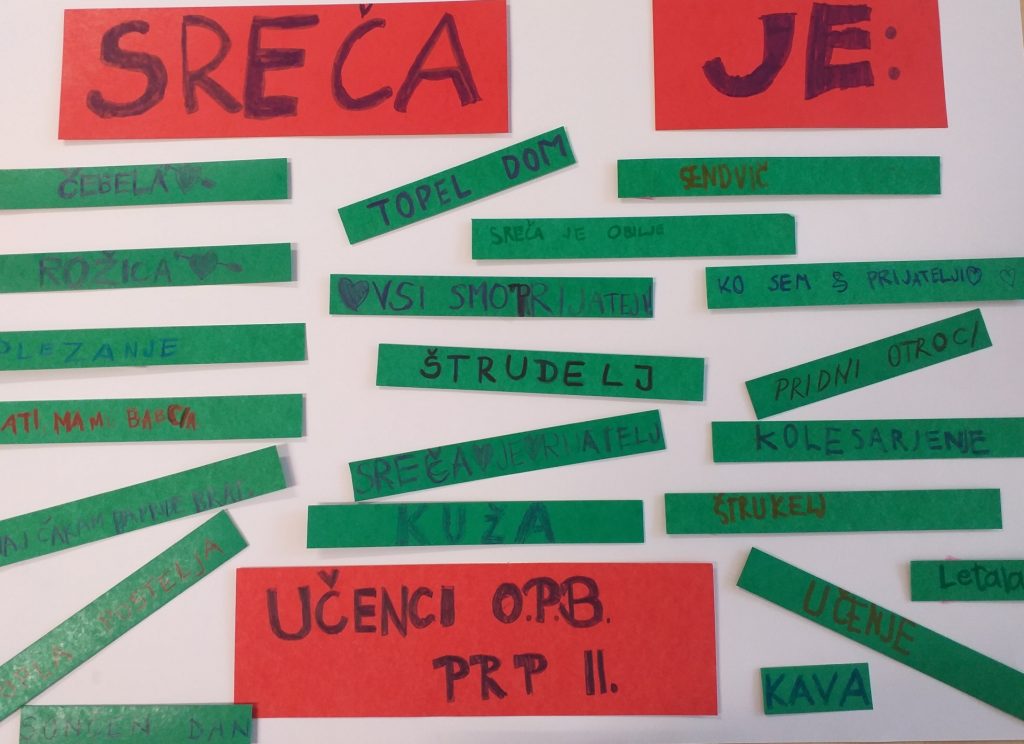 SREČA JE:
ČEBELA
TOPEL DOM
SENDVIČ
SREČA JE OBILJE
ROŽICA
VSI SMO PRIJATELJI
KO SEM S PRIJATELJI
PLEZANJE
ŠTRUDELJ
PRIDNI OTROCI
ATI MAMI BABCIA
SREČA JE PRIJATELJ
KOLESARJENJE
ČAKAM
KUŽA
ŠTRUKELJ
POSTELJA
UČENJE
Letala
UČENCI O.P.B.
PRP II.
KAVA
SONČEN DAN